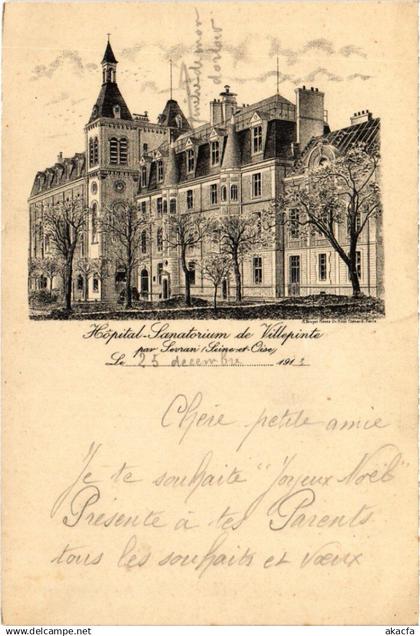 dortoir
Hôpital-Sanatorium de Villepinte
par Sevran (Seine-et-Oise)
Le 25 decembre 1913
Chère petite amie
Je te souhaite "Joyeux Noël"
Présente à tes Parents
tous les souhaits et vœux
www.delcampe.net
akacfa